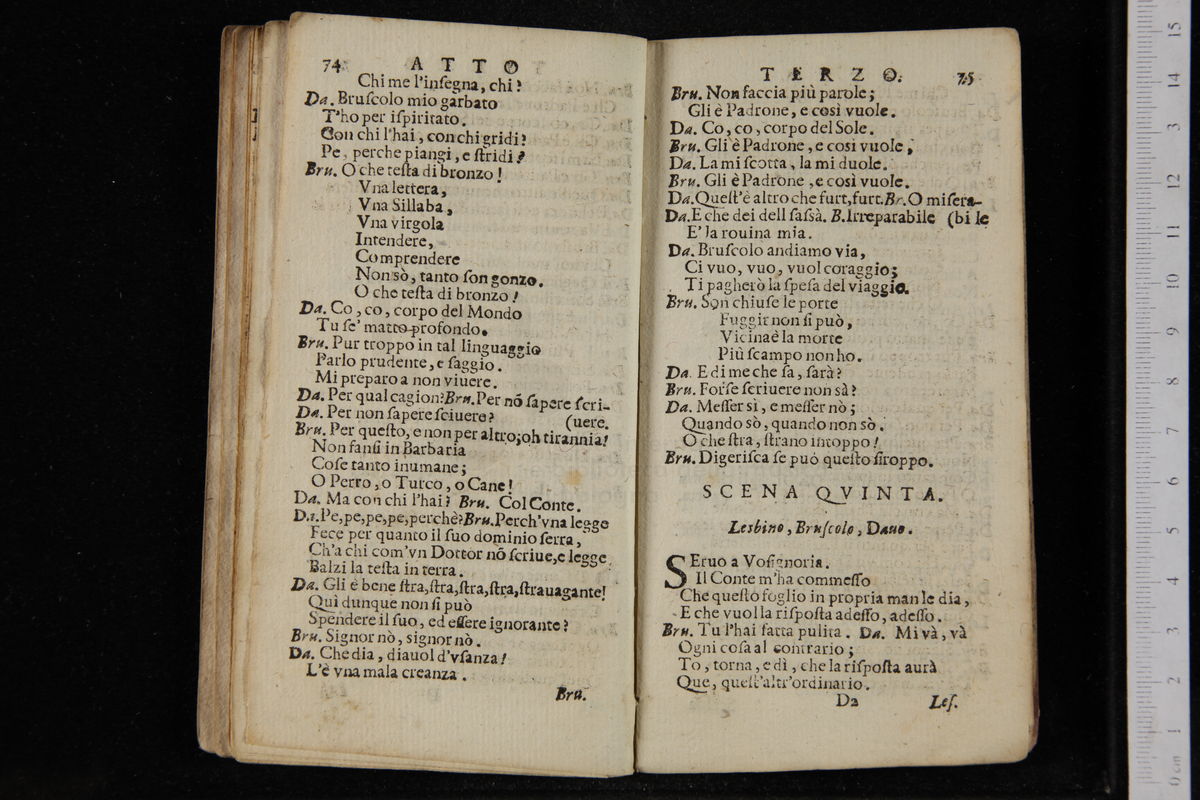 74 ATTO
Chi me l'inſegna, chi?
Da. Bruſcolo mio garbato
T'ho per iſpiritato.
Con chi l'hai, con chi gridi?
Pe, perche piangi, e ſtridi?
Bru. O che teſta di bronzo!
Vna lettera,
Vna Sillaba,
Vna virgola
Intendere,
Comprendere
Non sò, tanto ſon gonzo.
O che teſta di bronzo!
Da. Co, co, corpo del Mondo
Tu ſe' matto profondo.
Bru. Pur troppo in tal linguaggio
Parlo prudente, e ſaggio.
Mi preparo a non viuere.
Da. Per qual cagion? Bru. Per nõ ſapere ſcri-
Da. Per non ſapere ſciuere? (uere.
Bru. Per queſto, e non per altro; oh tirannia!
Non fanſi in Barbaria
Coſe tanto inumane;
O Perro, o Turco, o Cane!
Da. Ma con chi l'hai? Bru. Col Conte.
Da. Pe, pe, pe, pe, perchè? Bru. Perch'vna legge
Fece per quanto il ſuo dominio ſerra,
Ch'a chi com'vn Dottor nõ ſcriue, e legge
Balzi la teſta in terra.
Da. Gli è bene ſtra, ſtra, ſtra, ſtra, ſtrauagante!
Qui dunque non ſi può
Spendere il ſuo, ed eſſere ignorante?
Bru. Signor nò, signor nò.
Da. Che dia, diauol d'vſanza!
L'è vna mala creanza.
Bru.
TERZO. 75
Bru. Non faccia più parole;
Gli è Padrone, e così vuole.
Da. Co, co, corpo del Sole.
Bru. Gli è Padrone, e cosi vuole;
Da. La mi ſcotta, la mi duole.
Bru. Gli è Padrone, e così vuole.
Da. Queſt'è altro che furt, furt. Br. O miſera-
Da. E che dei dell ſaſsà. B. Irreparabile (bi le
E' la rouina mia.
Da. Bruſcolo andiamo via,
Ci vuo, vuo, vuol coraggio;
Ti pagherò la ſpeſa del viaggio.
Bru. Son chiuſe le porte
Fuggir non ſi può,
Vicina è la morte
Più ſcampo non ho.
Da. E di me che ſa, ſarà?
Bru. Forſe ſcriuere non sà?
Da. Meſſer si, e meſſer nò;
Quando sò, quando non sò.
O che ſtra, ſtrano intoppo!
Bru. Digeriſca ſe può queſto ſiroppo.
SCENA QVINTA.
Lesbino, Bruſcolo, Dauo.
SEruo a Voſignoria.
Il Conte m'ha commeſſo
Che queſto foglio in propria man le dia,
E che vuol la riſpoſta adeſſo, adeſſo.
Bru. Tu l'hai fatta pulita. Da. Mi và, và
Ogni coſa al contrario;
To, torna, e dì, che la riſpoſta aurà
Que, queſt'altr'ordinario.
Da Leſ.